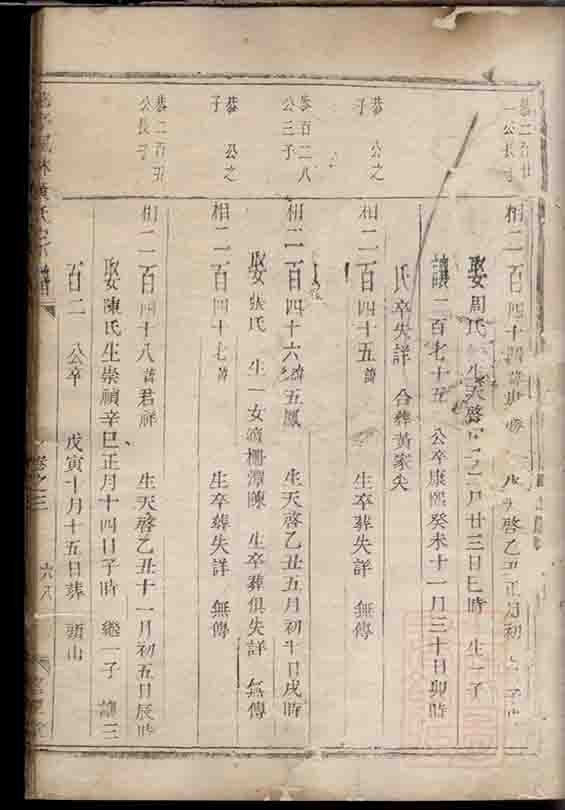 恭二百廿
一公長子
相二百四十四諱 生天啓乙丑正月初 子
娶周氏 生天啓 二月廿三日巳時 生一子
讓二百七十五 公卒康熙癸未十一月三十日卯時
氏卒失詳 合葬黃家尖
恭 公之
子
相二百四十五諱 生卒葬失詳 無傳
恭百二八
公三子
相二百四十六諱五鳳 生天啓乙丑五月初十日戌時
娶張氏 生一女適柵潭陳 生卒葬俱失詳 無傳
恭 公之
子
相二百四十七諱 生卒葬失詳 無傳
恭二百五
公長子
相二百四十八諱君祥 生天啓乙丑十一月初五日辰時
娶陳氏生崇禎辛巳正月十四日子時 繼一子 讓三
百二 公卒 戊寅十月十五日葬 新山
林黃氏宗譜 卷之三 六八